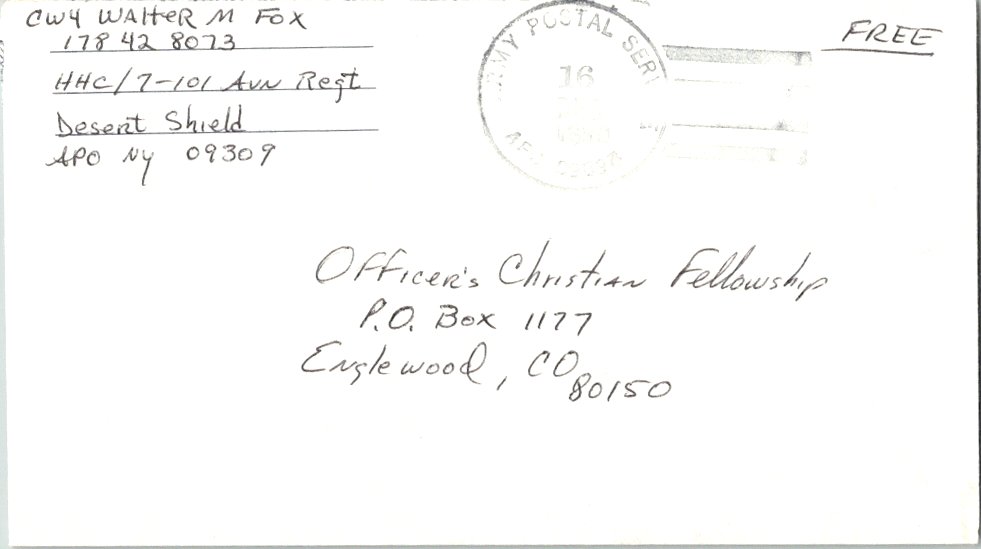 CW4 WALTER M FOX
178 42 8073
HHC/7-101 Avn Regt
Desert Shield
APO NY 09309
ARMY POSTAL SERV
16
FREE
Officer's Christian Fellowship
P.O. Box 1177
Englewood, CO
80150